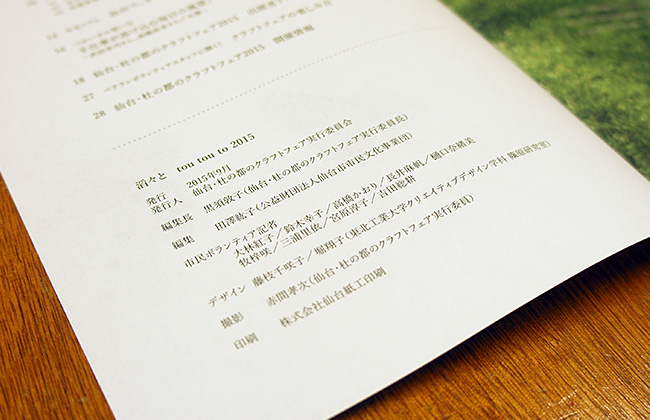 18 仙台・杜の都のクラフトフェア2015 出展者
27 ベテランボランティアスタッフに聞く! クラフトフェアの楽しみ方
28 仙台・杜の都のクラフトフェア2015 開催情報
滔々と tou tou to 2015
発行 2015年9月
発行人 仙台・杜の都のクラフトフェア実行委員会
編集長 黒須敦子(仙台・杜の都のクラフトフェア実行委員長)
編集 田澤紘子(公益財団法人仙台市市民文化事業団)
市民ボランティア記者
大林紅子/鈴木幸子/高橋かおり/長井麻帆/樋口奈緒美
牧梓咲/三浦里依/宮原淳子/吉田総耕
デザイン 藤枝千咲子/堀翔子(東北工業大学クリエイティブデザイン学科 篠原研究室)
撮影 赤間孝次(仙台・杜の都のクラフトフェア実行委員)
印刷 株式会社仙台紙工印刷